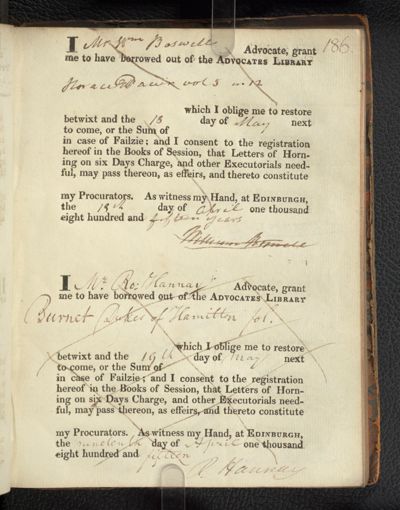 186.
I Mr Wm Boswell Advocate, grant
me to have borrowed out of the ADVOCATES LIBRARY
Horace Dacier vol 3 in 12
which I oblige me to restore
betwixt and the 13 day of May next
to come, or the Sum of
in case of Failzie; and I consent to the registration
hereof in the Books of Session, that Letters of Horn-
ing on six Days Charge, and other Executorials need-
ful, may pass thereon, as effeirs, and thereto constitute
my Procurators. As witness my Hand, at EDINBURGH,
the 13th day of April one thousand
eight hundred and fifteen years
William Boswell
I Mr. Ro: Hannay Advocate, grant
me to have borrowed out of the ADVOCATES LIBRARY
Burnet Dukes of Hamilton fol.
which I oblige me to restore
betwixt and the 19th day of May next
to come, or the Sum of
in case of Failzie; and I consent to the registration
hereof in the Books of Session, that Letters of Horn-
ing on six Days Charge, and other Executorials need-
ful, may pass thereon, as effeirs, and thereto constitute
my Procurators. As witness my Hand, at EDINBURGH,
the nineteenth day of April one thousand
eight hundred and fifteen
R. Hannay